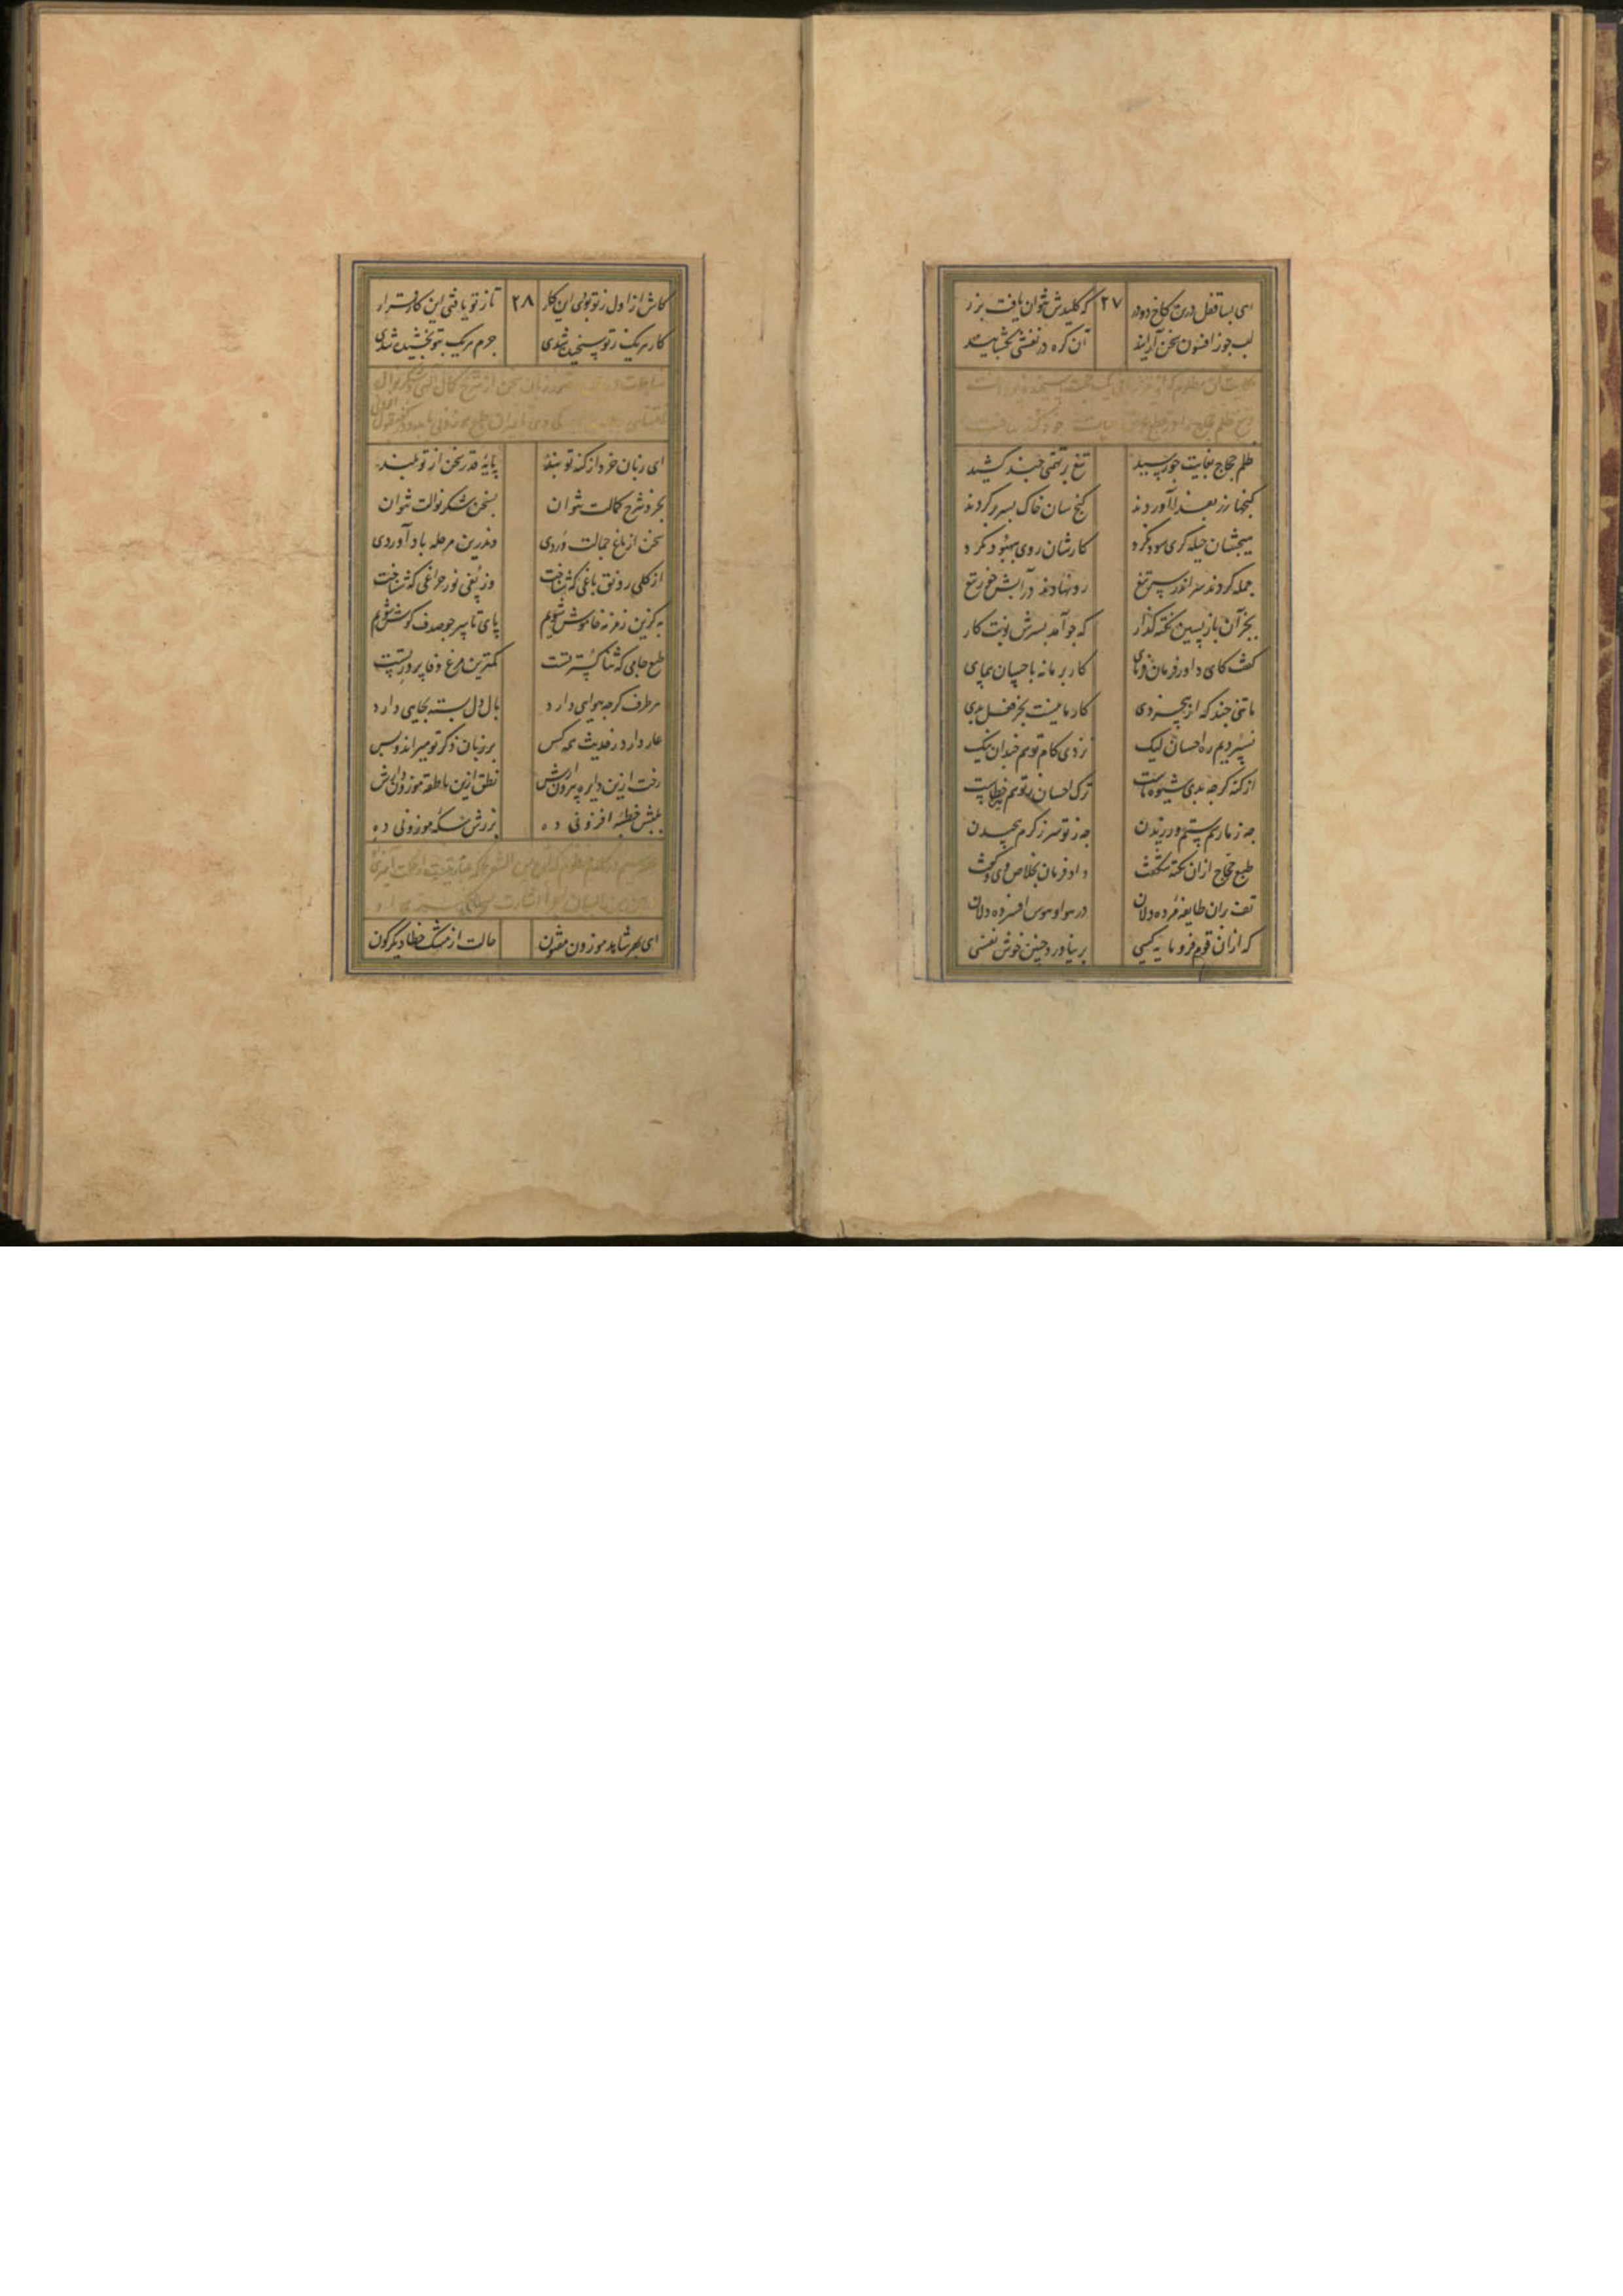 ای بسا قفل درین کاخ دو در ۲۷ که کلیدش نتوان یافت بزر
لب چو ز افسون سخن آرایند آن گره در نفسی بکشایند
ظلم حجاج بغایت چو رسید تیغ بر تنی چند کشید
گنجها زر بفدا آوردند گنج سان خاک بسر بر کردند
هیچشان حیله گری سود نکرد کارشان روی ببهبود نکرد
جمله کردند سر اندر سر تیغ رو نهادند در آتش چو
بجز آن بازپسین نکته گذار که چو آمد بسرش نوبت کار
گفت کای داور فرمان فرمای کار بر ما نه باحسان پیمای
ما تنی چند که از بیخردی کار ما نیست بجز فعل بدی
نسپردیم ره احسان لیک نزدی گام تو هم چندان نیک
از گنه گرچه بدی شیوه ماست ترک احسان ز تو هم خطاست
چه ز ما رسم ستم ورزیدن چه ز تو سر ز کرم پیچیدن
طبع حجاج ازان نکته شکفت داد فرمان خلاصی و بگفت
تف بران طایفه مرده دلان در هوا و هوس افسرده دلان
که ازان قوم فرومایه کسی بر نیاورد چنین خوش نفسی
کاش از اول ز تو بودی این کار ۲۸ تا ز تو یافتی این کار قرار
کار هر یک ز تو سنجیده شدی جرم هر یک بتو بخشیده شدی
ای زبان خرد از کنه تو بند پایه قدر سخن از تو بلند
بخرد شرح کمالت نتوان بسخن شکر نوالت نتوان
سخن از باغ جمالت وردی وندرین مرحله باد آوردی
از گلی رونق باغی که شناخت وز پفی نور چراغی که شناخت
به کزین زمزمه خاموش شویم پای تا سر چو صدف گوش شویم
طبع جامی که ثنا گستر تست کمترین مرغ وفا پرور تست
هر طرف گرچه هوایی دارد بال دل بسته بجایی دارد
عار دارد ز حدیث همه کس بر زبان ذکر تو میراند و بس
رخت ازین دایره بیرون آرش نطق ازین ناطقه موزون دارش
بلبش خطبه افزونی ده بزرش سکه موزونی ده
ای بهر شاهد موزون مفتون حالت از مشک خطان دیگرگون